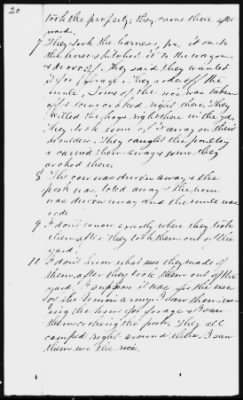 20
took the property they came there after
ward.
7 They took the harness, put it on to
the horse & hitched it to the wagon
& drove off. They said they wanted
it for forage. They rode off the
mule. Some of the rice was taken
off & some cooked right there. They
killed the hogs right there in the yd.
They took some of it away on their
shoulders. They caught the poultry
& carried them away & some they
cooked there.
8 The cow was driven away & the
pork was toted away & the horse
was driven away and the mule was
rode
9 I don't know exactly where they took
them after they took them out of the
yard.
10 I don't know what use they made of
them after they took them out of the
yard. I suppose it was for the use
of the Union army. I saw them us-
ing the horse for forage & I saw
them cooking the pork. They all
camped right around there. I saw
them use the rice.